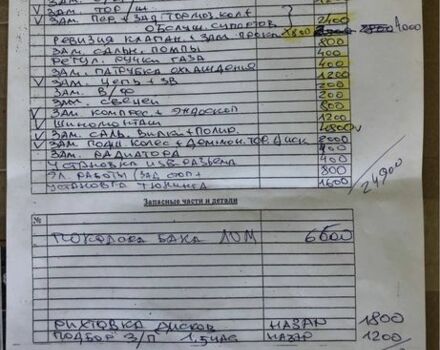 ЗАМ. ТОР/Ш.
ЗАМ. ПЕР + ЗАД ТОРМОЗ. КОЛ + 2400
ОБСЛУЖ. СУПОРТОВ
РЕВИЗИЯ КЛАПАН + ЗАМ. 4000
ЗАМ. САЛЬН. ПОМПЫ 800
РЕГУЛ. РУЧКИ ГАЗА 400
ЗАМ. ПАТРУБКА ОХЛАЖДЕНИЯ 400
ЗАМ. ЦЕПЬ + ЗВ 1200
ЗАМ. В/Ф 200
ЗАМ. СВЕЧЕЙ 200
ЗАМ. КОМПРЕС. + ЭНДОСКОП 800
ШИНОМОНТАЖ 1200
ЗАМ. САЛЬ. ВИЛКИ + ПОЛИР. 4800
ЗАМ. ПОДШ КОЛЕС + ДЕМОНТ. ТОР. ДИСК 2000
ЗАМ. РАДИАТОРА 400
УСТАНОВКА USB РАЗЪЕМА 400
ЭЛ. РАБОТЫ (ЗАД СТОП + 800
УСТАНОВКА ТЮНИНГА 1600
24900
Запасные части и детали
№
ПОКРАСКА БАКА ЛОМ 6600
РИХТОВКА ДИСКОВ НАЗАР 1800
ПОДБОР З/П 1,5 ЧАС НАЗАР 1200